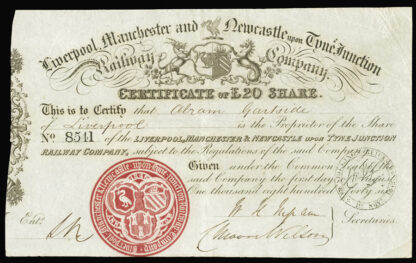 Liverpool, Manchester and Newcastle upon Tyne Junction
Railway Company.
CERTIFICATE OF £20 SHARE.
This is to Certify that Abram Gartside
Liverpool is the Proprietor of the Share
No 8541 of the LIVERPOOL, MANCHESTER & NEWCASTLE UPON TYNE JUNCTION
RAILWAY COMPANY, subject to the Regulations of the said Company
Given under the Common
said Company the first day August
One thousand eight hundred forty six
Entd.
Secretaries.